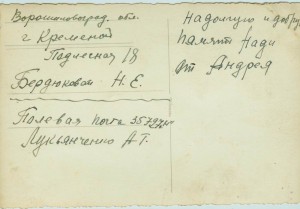 Ворошиловград. обл.
г Кременой
Подлесная 18
Бердюковой Н. Е.
Полевая почта 35797
Лукьянченко А Т.
На долгую и добру
Память Нади
от Андрея